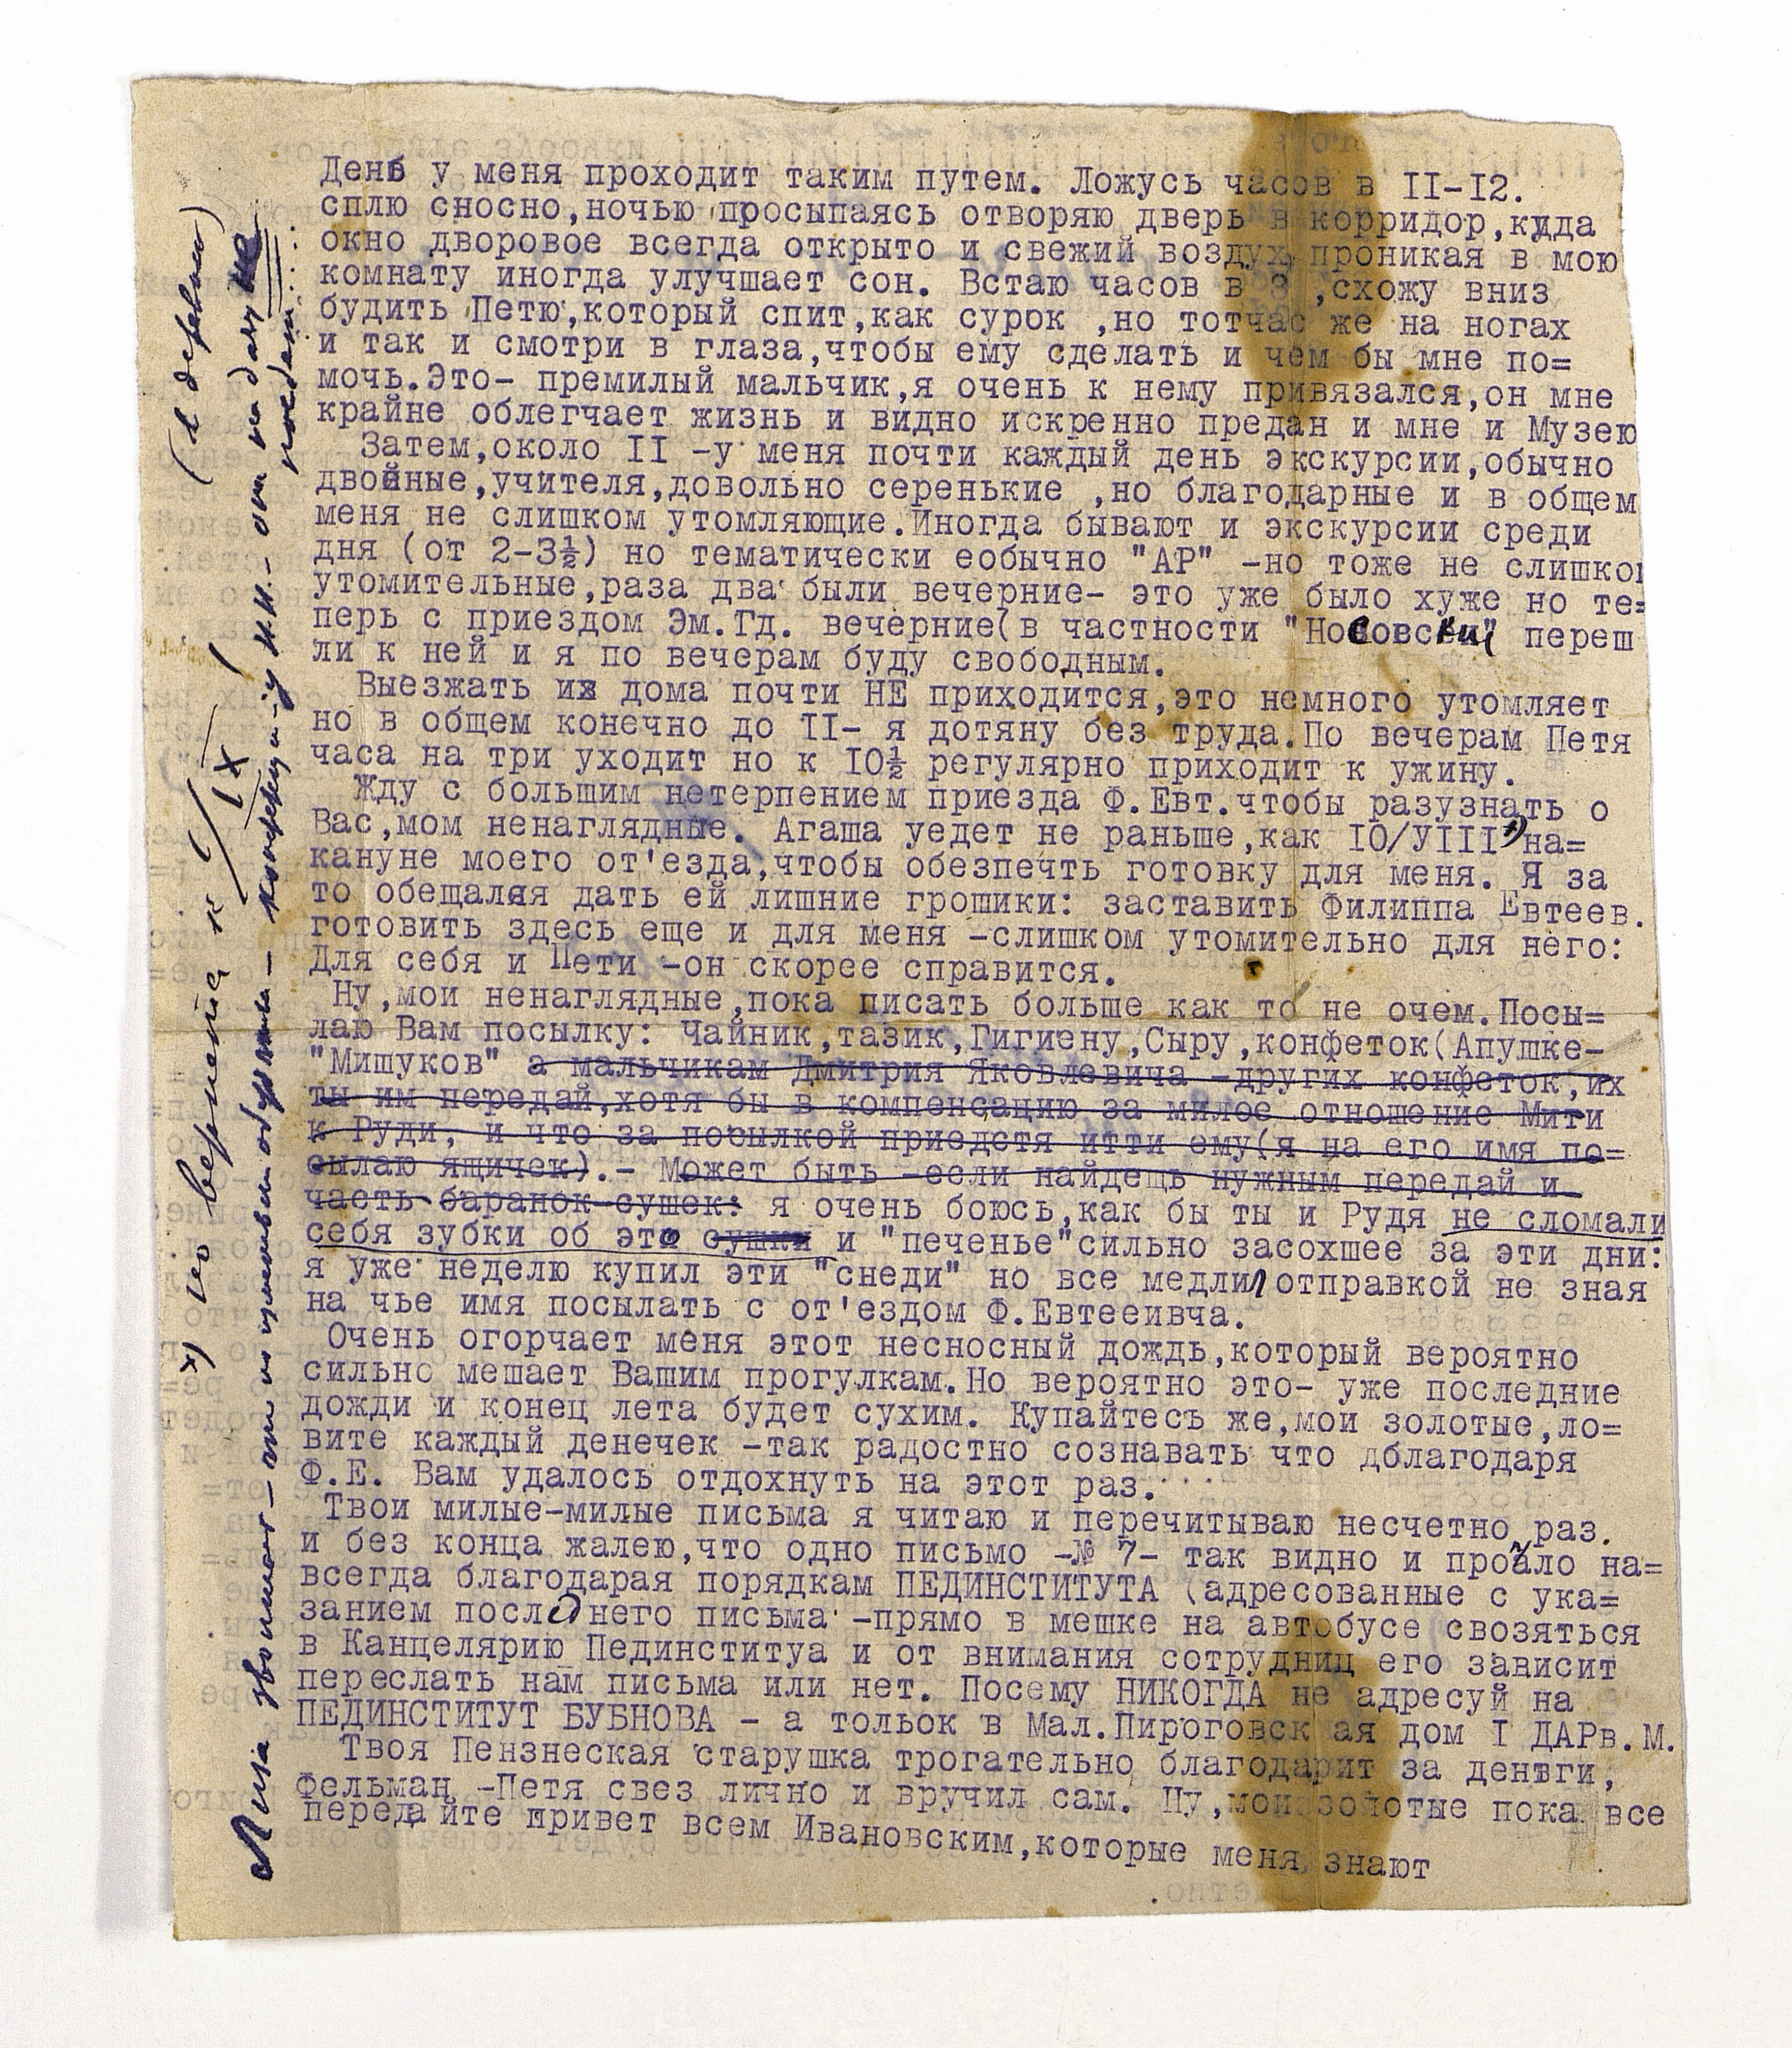 День у меня проходит таким путем. Ложусь часов в II-I2.
сплю сносно,ночью просыпаясь отворяю дверь в корридор,куда
окно дворовое всегда открыто и свежий воздух проникая в мою
комнату иногда улучшает сон. Встаю часов в 8 ,схожу вниз
будить Петю,который спит,как сурок ,но тотчас же на ногах
и так и смотри в глаза,чтобы ему сделать и чем бы мне по=
мочь.Это- премилый мальчик,я очень к нему привязался,он мне
крайне облегчает жизнь и видно искренно предан и мне и Музею
Затем,около II -у меня почти каждый день экскурсии,обычно
двойные,учителя,довольно серенькие ,но благодарные и в общем
меня не слишком утомляющие.Иногда бывают и экскурсии среди
дня (от 2-3½) но тематически еобычно "АР" -но тоже не слишком
утомительные,раза два были вечерние- это уже было хуже но те=
перь с приездом Эм.Гд. вечерние(в частности "Носовский" переш
ли к ней и я по вечерам буду свободным.
Выезжать из дома почти НЕ приходится,это немного утомляет
но в общем конечно до II- я дотяну без труда.По вечерам Петя
часа на три уходит но к I0½ регулярно приходит к ужину.
Жду с большим нетерпением приезда Ф.Евт.чтобы разузнать о
Вас,мом ненаглядные. Агаша уедет не раньше,как I0/УIII х) на=
кануне моего от'езда,чтобы обезпечть готовку для меня. Я за
то обещался дать ей лишние грошики: заставить Филиппа Евтеев.
готовить здесь еще и для меня -слишком утомительно для него:
Для себя и Пети -он скорее справится.
Ну,мои ненаглядные,пока писать больше как то не очем.Посы=
лаю Вам посылку: Чайник,тазик,Гигиену,Сыру,конфеток(Апушке-
"Мишуков" а мальчикам Дмитрия Яковлевича -других конфеток,их
ты им передай,хотя бы в компенсацию за милое отношение Мити
к Руди, и что за посылкой приедстя итти ему(я на его имя по=
сылаю ящичек).- Может быть -если найдещь нужным передай и
часть баранок-сушек: я очень боюсь,как бы ты и Рудя не сломали
себя зубки об это сушки и "печенье"сильно засохшее за эти дни:
я уже неделю купил эти "снеди" но все медлил отправкой не зная
на чье имя посылать с от'ездом Ф.Евтееивча.
Очень огорчает меня этот несносный дождь,который вероятно
сильно мешает Вашим прогулкам.Но вероятно это- уже последние
дожди и конец лета будет сухим. Купайтесь же,мои золотые,ло=
вите каждый денечек -так радостно сознавать что дблагодаря
Ф.Е. Вам удалось отдохнуть на этот раз.
Твои милые-милые письма я читаю и перечитываю несчетно раз.
и без конца жалею,что одно письмо -№ 7- так видно и проало на=
всегда благодарая порядкам ПЕДИНСТИТУТА (адресованные с ука=
занием последнего письма -прямо в мешке на автобусе свозяться
в Канцелярию Пединституа и от внимания сотрудниц его зависит
переслать нам письма или нет. Посему НИКОГДА не адресуй на
ПЕДИНСТИТУТ БУБНОВА - а тольок в Мал.Пироговск ая дом I ДАРв.М.
Твоя Пензнеская старушка трогательно благодарит за деньги,
Фельман -Петя свез лично и вручил сам. Ну,мои золотые пока все
передайте привет всем Ивановским,которые меня знают
х) но вернется к 1/IX!
(в деревню)